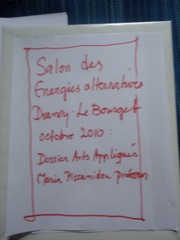 Salon des
Energies alternatives
Drancy-Le Bourget
octobre 2010:
Dossier Arts Appliqués
Maria professeur